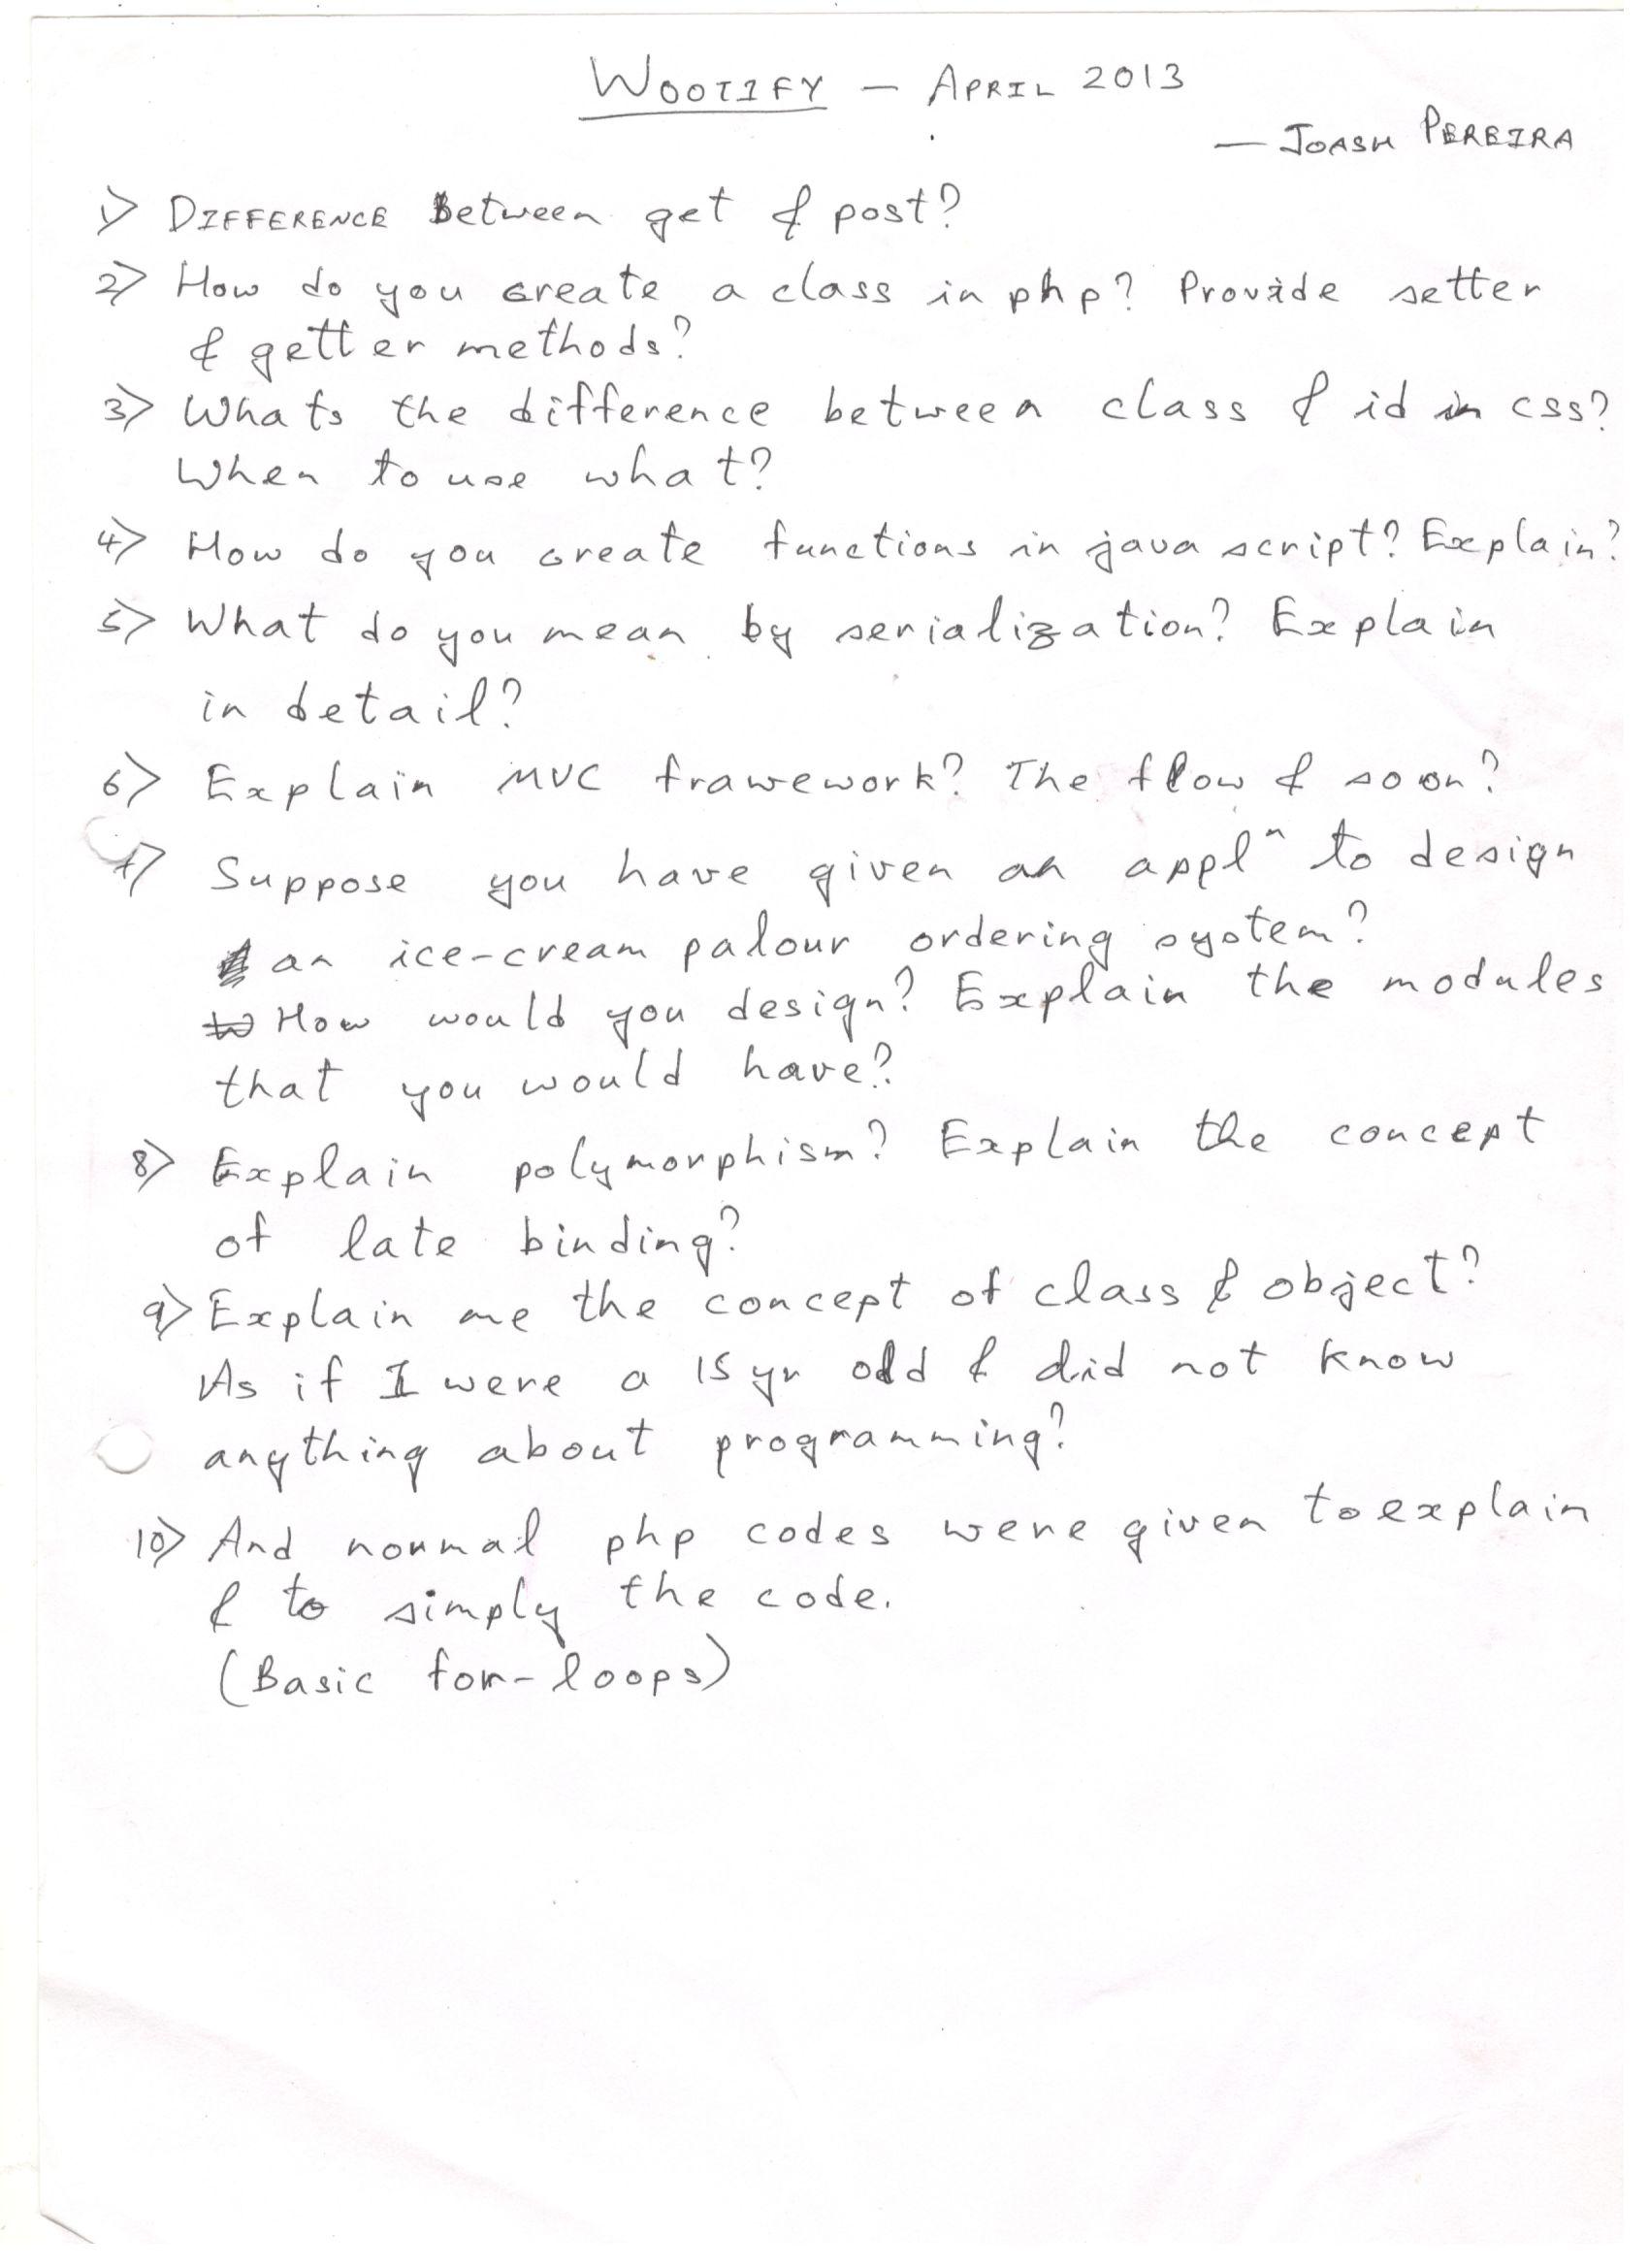 WOOTIFY – APRIL 2013
– JOASH PEREIRA
1) DIFFERENCE Between get & post?
2) How do you create a class in php? Provide setter
& getter methods?
3) Whats the difference between class & id in css?
When to use what?
4) How do you create functions in java script? Explain?
5) What do you mean by serialization? Explain
in detail?
6) Explain MVC frawework? The flow & so on?
7) Suppose you have given an applⁿ to design
an ice-cream palour ordering system?
How would you design? Explain the modules
that you would have?
8) Explain polymorphism? Explain the concept
of late binding?
9) Explain me the concept of class & object?
As if I were a 15 yr old & did not know
anything about programming?
10) And normal php codes were given to explain
& to simply the code.
(Basic for-loops)